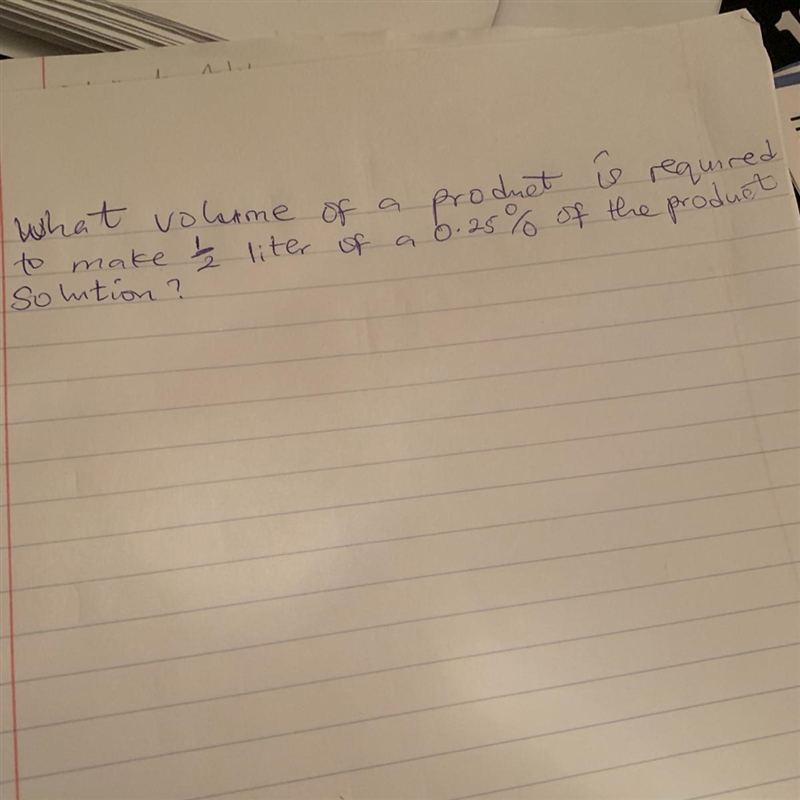 What volume of a product is required
to make 1/2 liter of a 0.25% of the product
Solution?